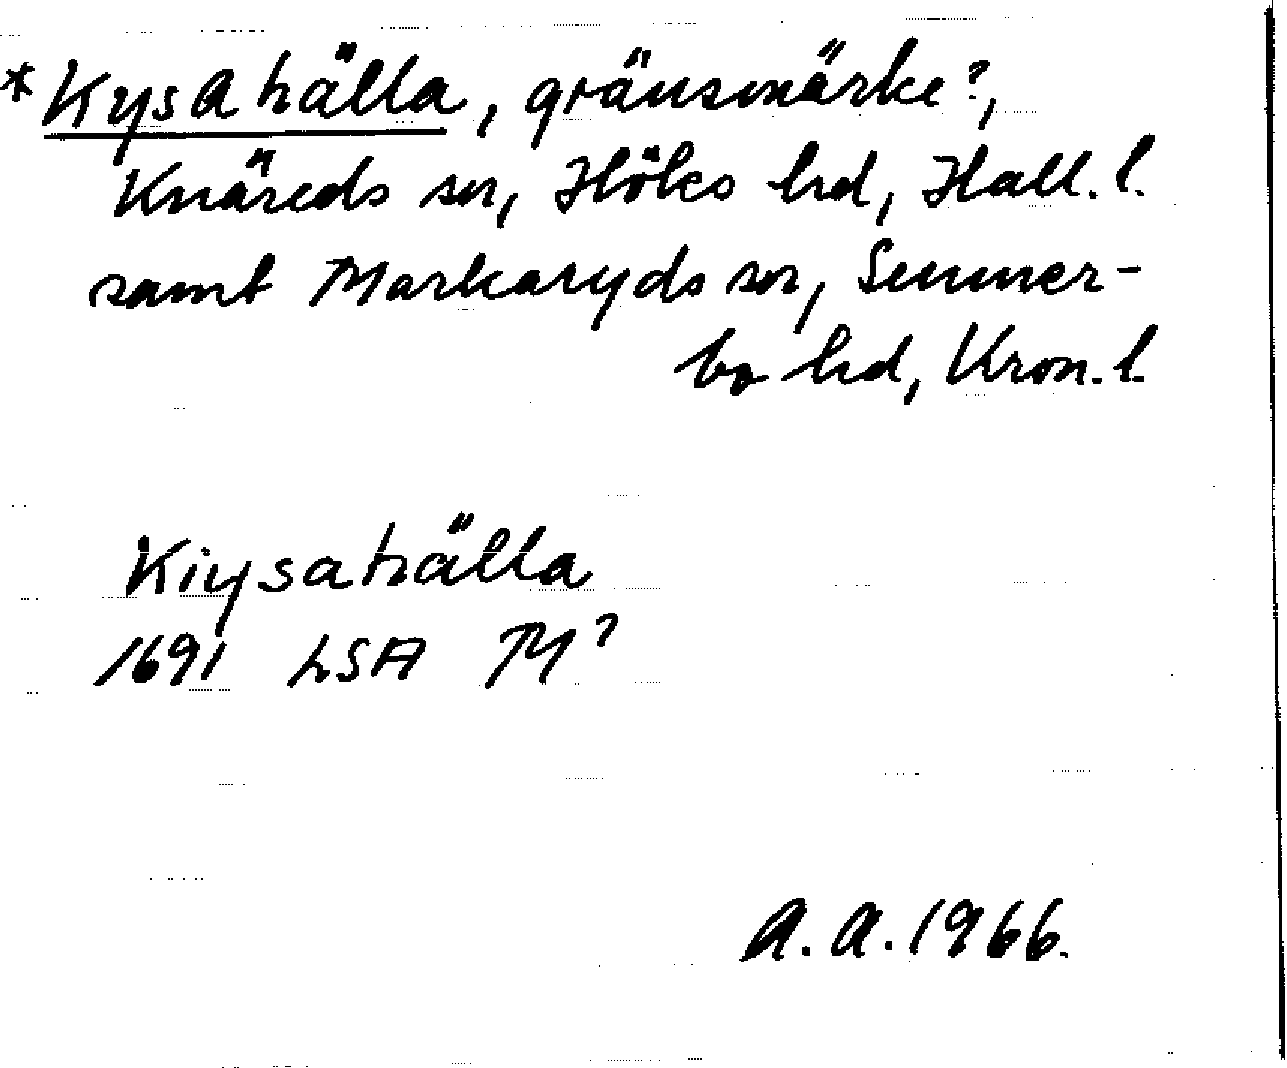 *Kysahälla, gränsmärke?,
Knäreds sn, Höks hd, Hall. l.
samt Markaryds sn, Sunner-
bo hd, Kron. l.
Kiysahälla
1691 LSA M?
A.A. 1966.